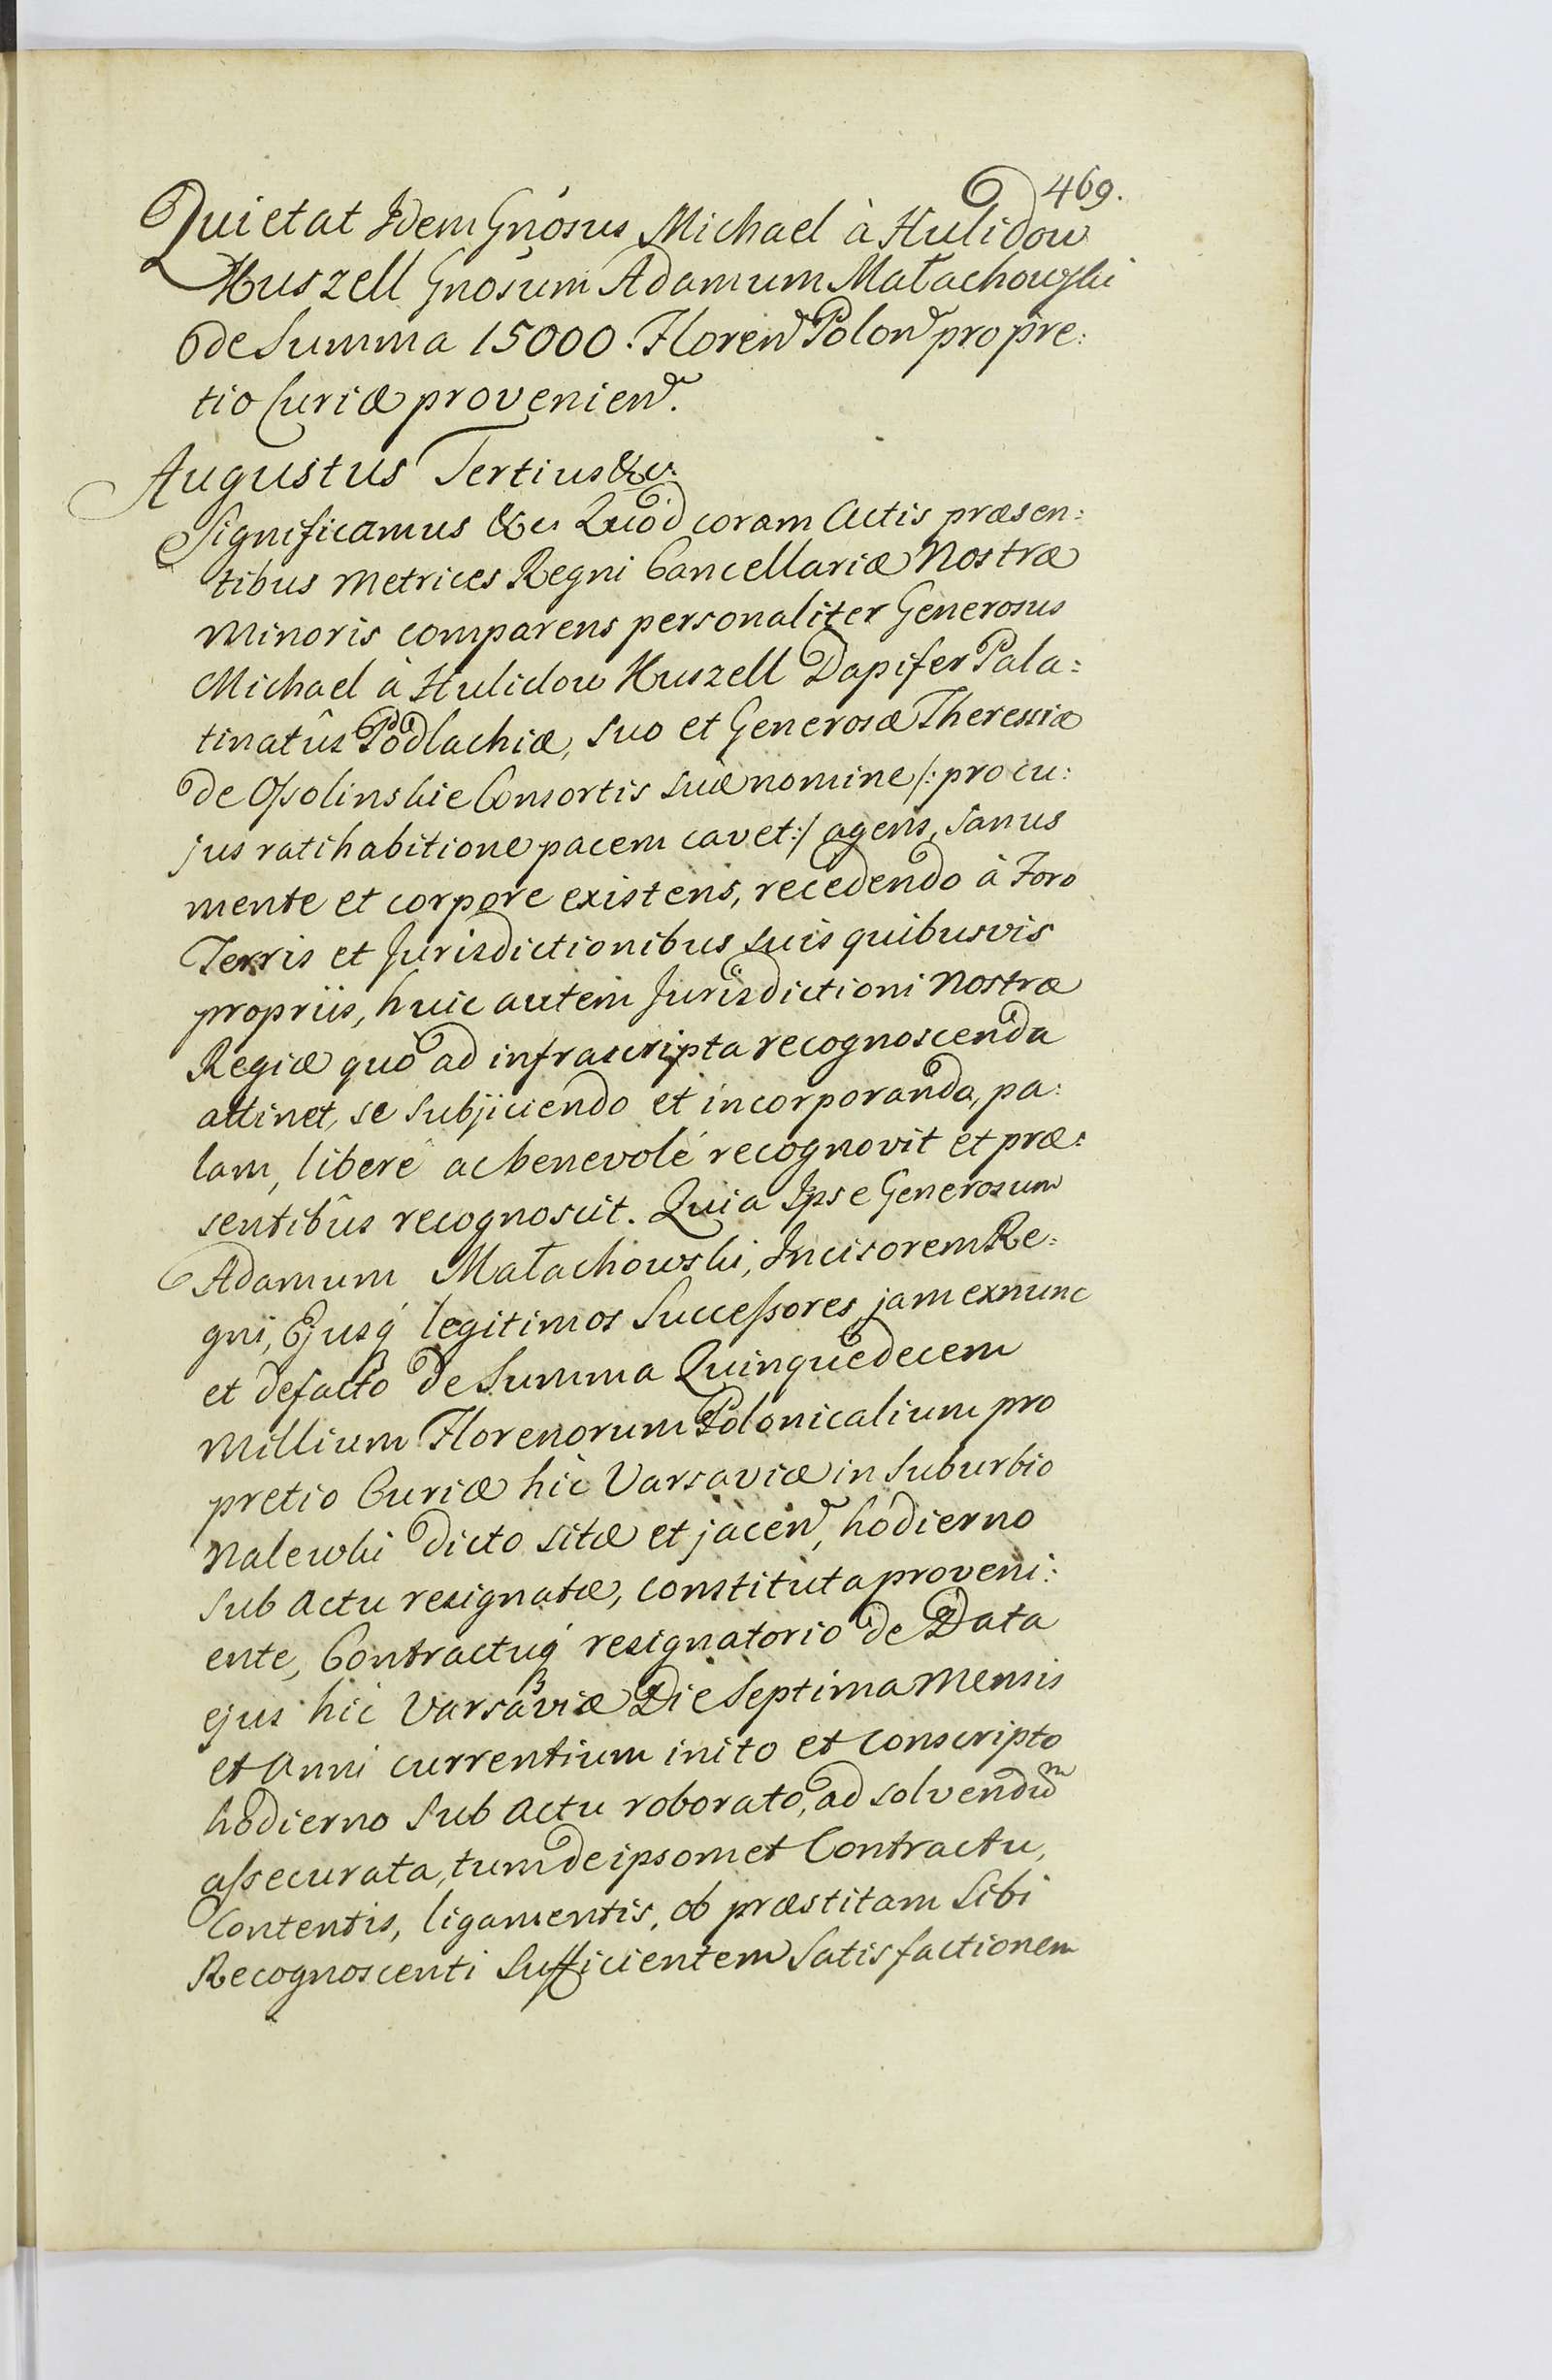 469.
Quietat Idem Gnosus Michael à Hulidow
Kuszell Gnosum Adamum Małachowski
de Summa 15000. Floren Polon pro pre:
tio Curiæ provenien.
Augustus Tertius &c:
Significamus &c. Quod coram Actis præsen:
tibus Metrices Regni Cancellariæ Nostræ
Minoris comparens personaliter Generosus
Michael à Hulidow Kuszell Dapifer Pala:
tinatûs Podlachiæ, suo et Generosæ Theressiæ
de Ossolinskie Consortis suæ nomine /: pro cu:
jus ratihabitione pacem cavet :/ agens, sanus
mente et corpore existens, recedendo à Foro
Terris et Jurisdictionibus suis quibusvis
propriis, huic autem Jurisdictioni Nostræ
Regiæ quò ad infrascripta recognoscenda
attinet, se subjiciendo et incorporando, pa:
lam, liberè ac benevolé recognovit et præ:
sentibûs recognoscit. Quia Ipse Generosum
Adamum Małachowski, Incisorem Re:
gni, Ejusq́ legitimos Successores jam exnunc
et defacto de Summa Quinquedecem
Millium Florenorum Polonicalium pro
pretio Curiæ hîc Varsaviæ in Suburbio
Nalewki dicto sitæ et jacen, hodierno
sub actu resignatæ, constituta proveni:
ente, Contractuq́ resignatorio de Data
ejus hîc Varsaviæ Die Septima Mensis
et Anni currentium inito et conscripto
hodierno sub actu roborato, ad solvendum
assecurata, tum de ipsomet Contractu,
Contentis, ligamentis, ob præstitam Sibi
Recognoscenti Sufficientem Satisfactionem